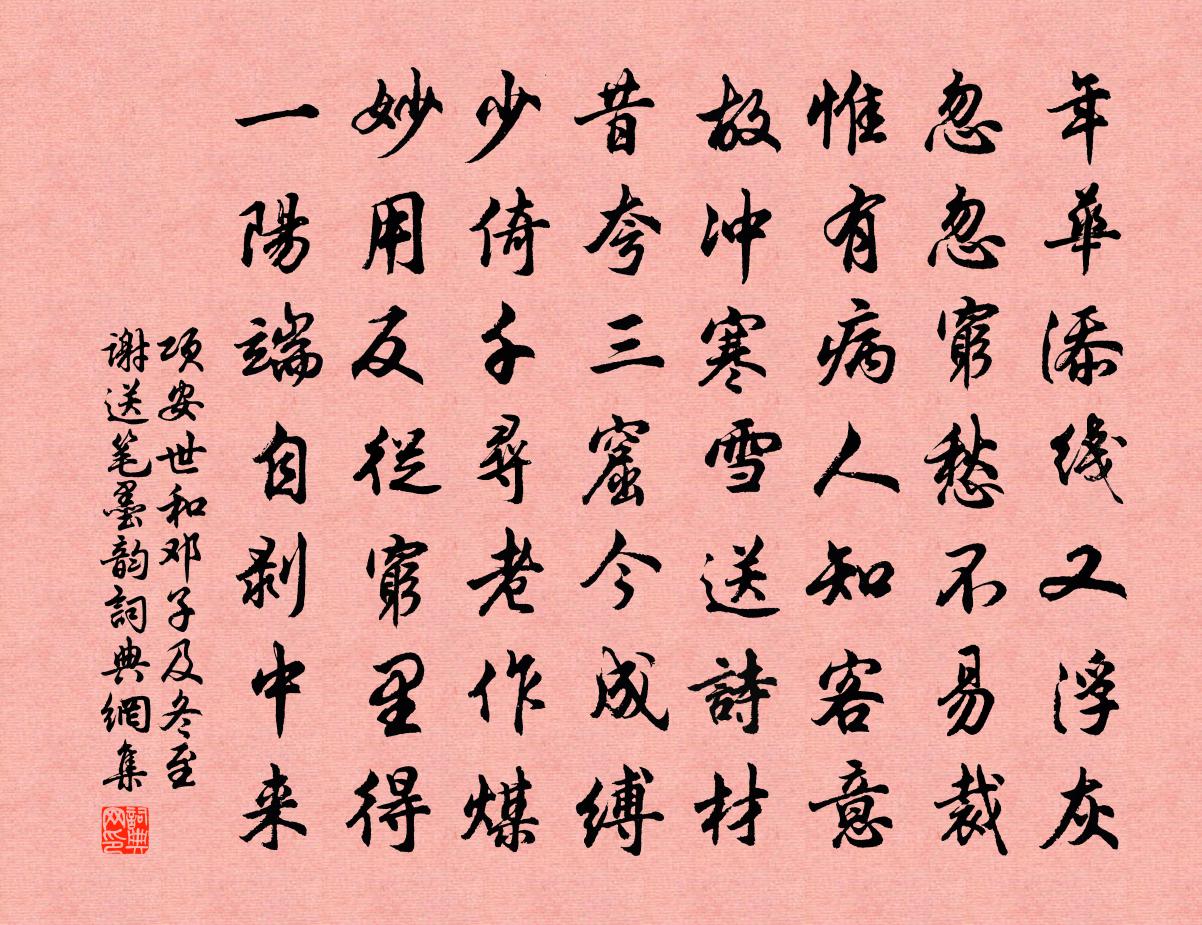 年華添线又浮灰
忽忽窮愁不易裁
惟有病人知客意
故冲寒雪送詩材
昔夸三窟今成縛
少倚千尋老作煤
妙用反從窮里得
一陽端自剥中来
项安世和邓子及冬至
谢送笔墨韵詞典網集
詞典
网印